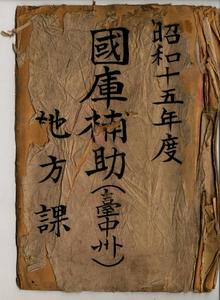 昭和十五年度
國庫補助(臺中州)
地方課